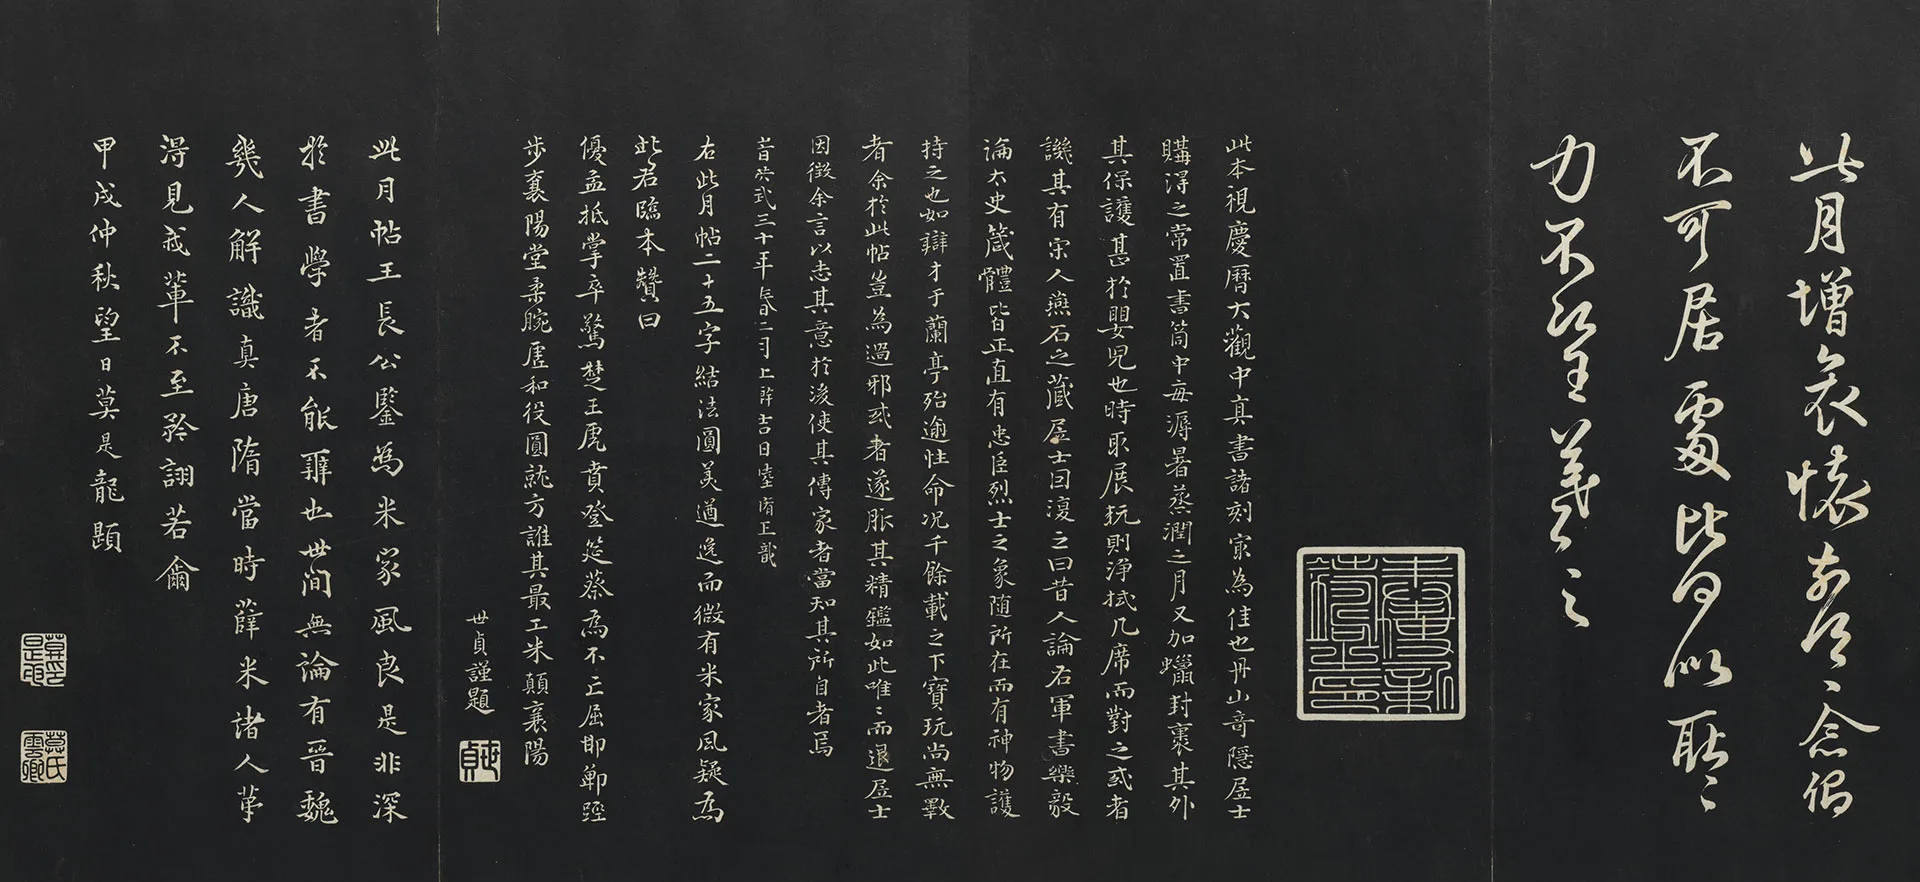 此月增哀懷前得〻念得
不可居處比何似耿〻
力不一一羲之
此本視慶曆大觀中真書諸刻寂為佳也丹山奇隱居士
購淂之常置書筒中每溽暑蒸潤之月又加蠟封裹其外
其保護甚於嬰児也時取展玩則淨拭几席而對之或者
譏其有宋人燕石之藏居士曰復之曰昔人論右軍書樂毅
論太史箴體皆正直有忠臣烈士之象随所在而有神物護
持之也如辯才于蘭亭殆逾性命况千餘載之下寶玩尚無斁
者余於此帖豈為過邪或者遂脈其精鑑如此唯〻而退居士
因徵余言以志其意於後使其傳家者當知其所自者焉
旹洪武三十年春二月上澣吉日
右此月帖二十五字結法圓美遒逸而微有米家風疑為
此君臨本贊曰
優孟抵掌卒驚楚王虎賁登筵蔡為不亡屈即鄲踁
步襄陽堂柔腕虛和役圓就方誰其最工米顛襄陽
世貞謹題
世貞
此月帖王長公鑒為米家風良是非深
於書學者不能辨也世間無論有晉魏
幾人解識真唐隋當時薛米諸人苐
淂見我輩不至矜詡若爾
甲戌仲秋望日莫是龍題
莫氏雲卿